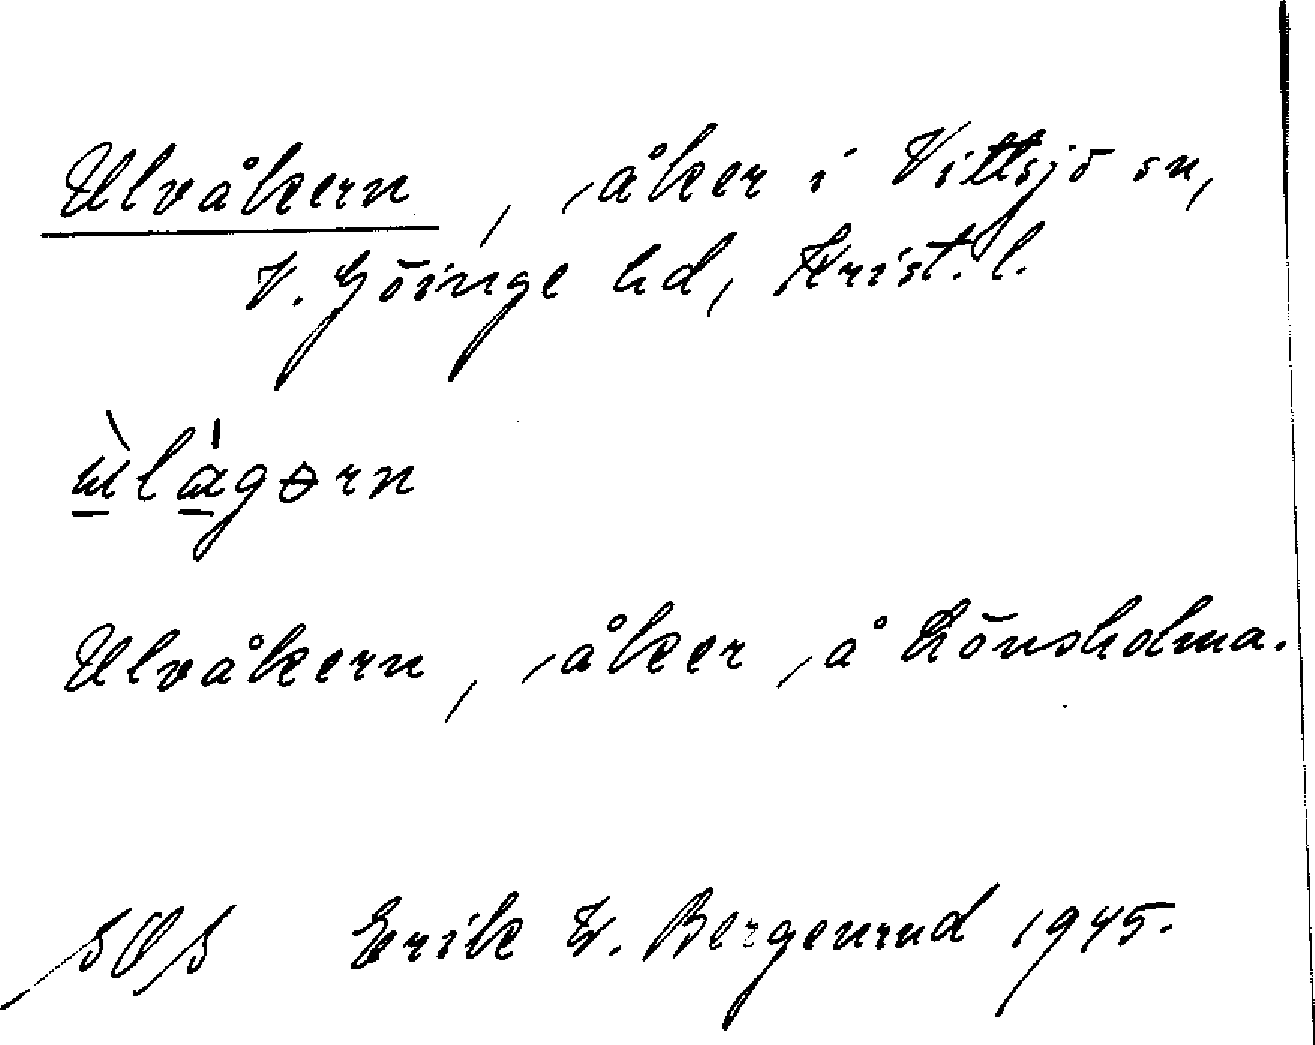 Ulvåkern, åker i Vittsjö sn,
V. Göinge hd, Krist. l.
Ulvåkern, åker å Lönsholma.
Erik W. Bergenrud 1945.